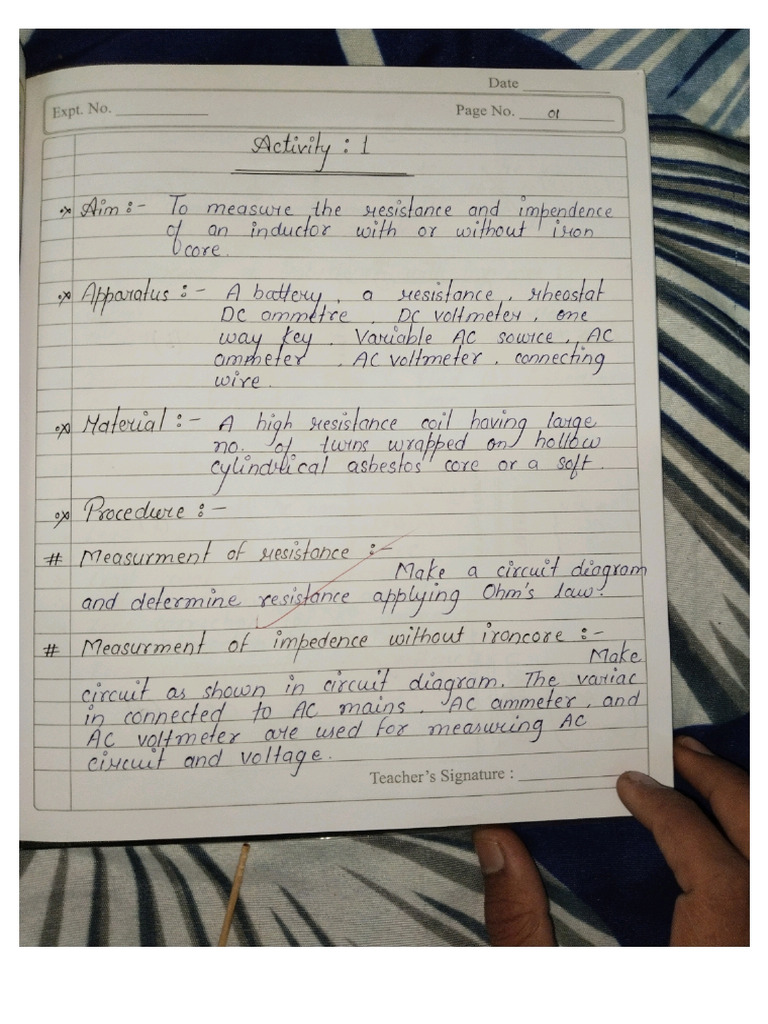 Date
Expt. No.
Page No. 01
Activity : 1
Aim :- To measure the resistance and impendence
of an inductor with or without iron
core.
Apparatus :- A battery, a resistance, rheostat
DC ammetre, DC voltmeter, one
way key, Variable AC source, AC
ammeter, AC voltmeter, connecting
wire.
Material :- A high resistance coil having large
no. of turns wrapped on hollow
cylindrical asbestos core or a soft.
Procedure :-
# Measurment of resistance :-
Make a circuit diagram
and determine resistance applying Ohm's law.
# Measurment of impedence without ironcore :-
Make
circuit as shown in circuit diagram. The variac
in connected to AC mains. AC ammeter, and
AC voltmeter are used for measuring AC
circuit and voltage.
Teacher's Signature :